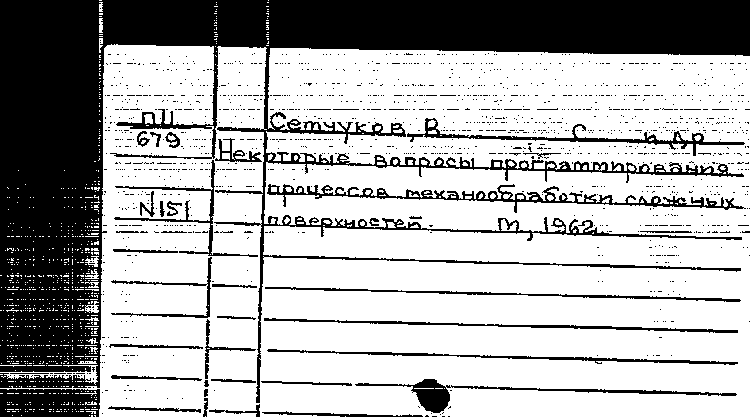 ПИ
679
Сетчуков, В. С. и др
Некоторые вопросы программирования
процессов механообработки сложных
N151
поверхностей. М, 1962